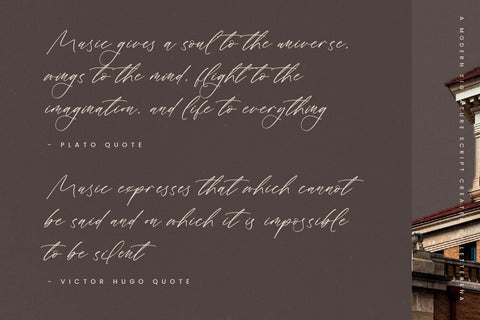 Music gives a soul to the universe,
wings to the mind, flight to the
imagination, and life to everything
- PLATO QUOTE
Music expresses that which cannot
be said and on which it is impossible
to be silent
- VICTOR HUGO QUOTE
A MODERN
URE SCRIPT